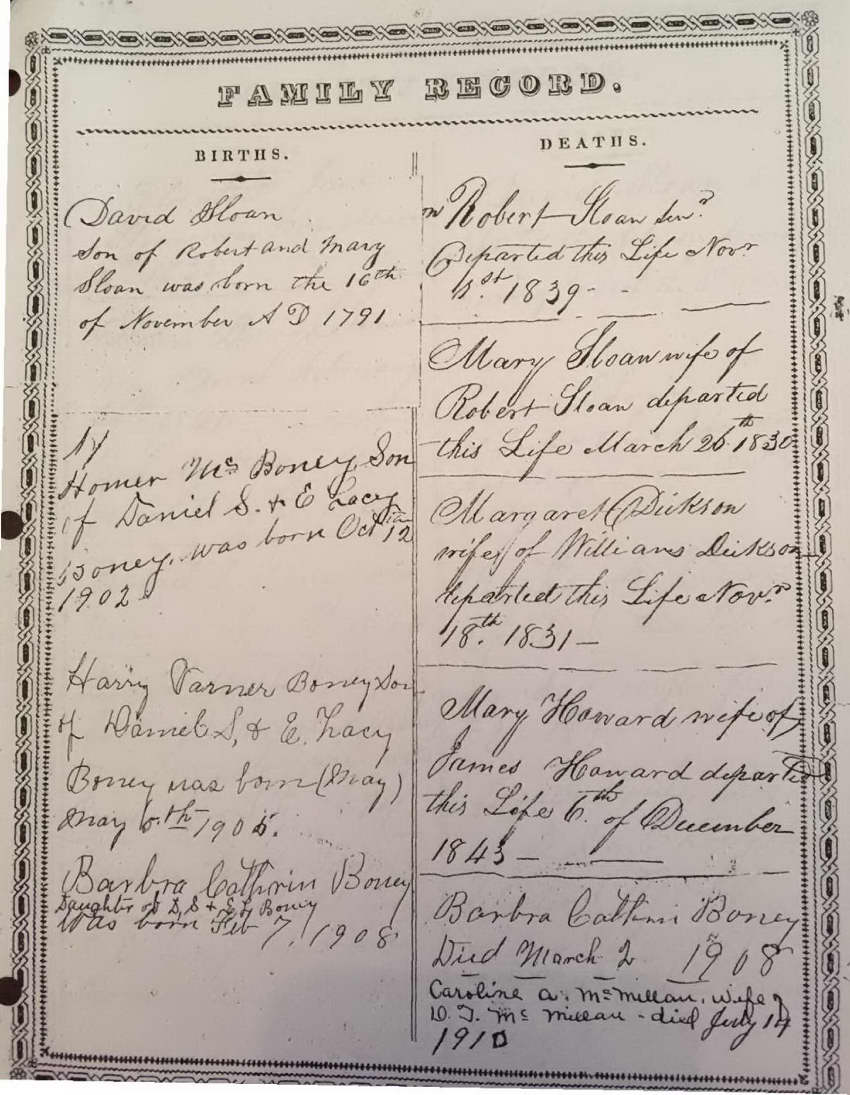 FAMILY RECORD.
BIRTHS.
David Sloan
son of Robert and Mary
Sloan was born the 16th
of November A D 1791
Homer Mc Boney Son
of Daniel S. & E Lacy
Boney. was born Oct 12
1902
Harry Varner Boney Son
of Daniel S, & E. Lacy
Boney was born (May)
May 6th 1905.
Barbra Cathrin Boney
Daughter of D, S & E L Boney
Was born Feb 7, 1908
DEATHS.
Robert Sloan Senr
Departed this Life Novr
1st 1839 -
Mary Sloan wife of
Robert Sloan departed
this Life March 26th 1830
Margaret Dickson
wife of Williams Dickson
departed this Life Novr
18th 1831 -
Mary Howard wife of
James Howard departed
this Life 6th of December
1843 -
Barbra Cathrin Boney
Died March 2 1908
Caroline A. McMillan, wife of
D. T. Mc Millan - died July 14
1910